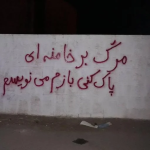 مرگ بر خامنه ای
پاک کنی بازم می نویسم